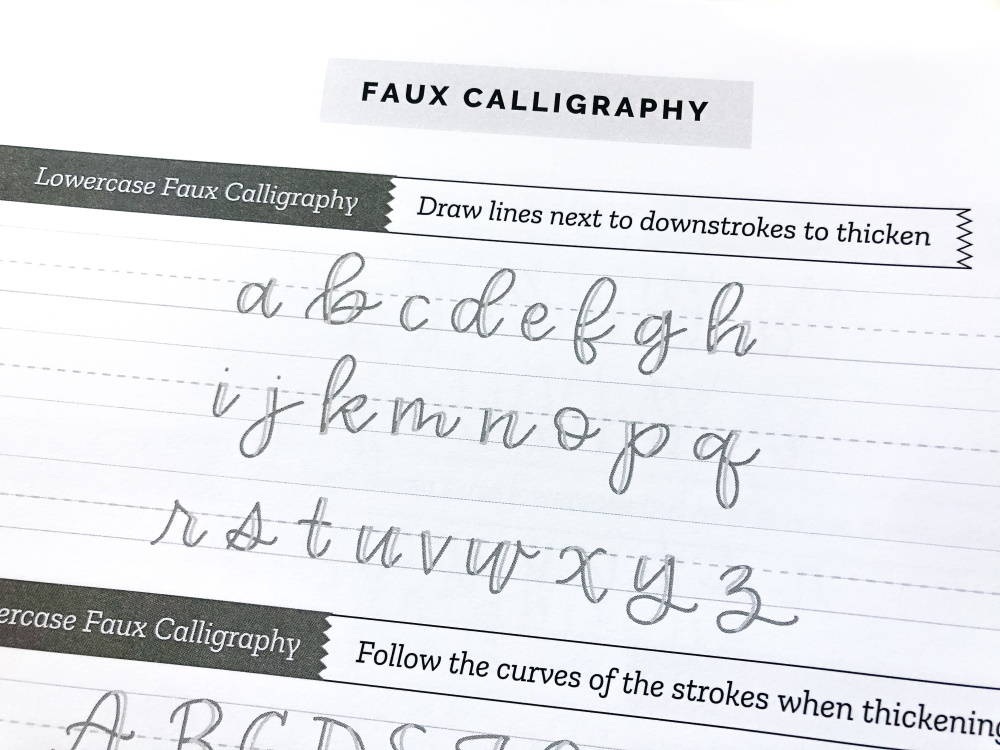 FAUX CALLIGRAPHY
Lowercase Faux Calligraphy
Draw lines next to downstrokes to thicken
a b c d e f g h
i j k m n o p q
r s t u v w x y z
ercase Faux Calligraphy
Follow the curves of the strokes when thickening
A B C D